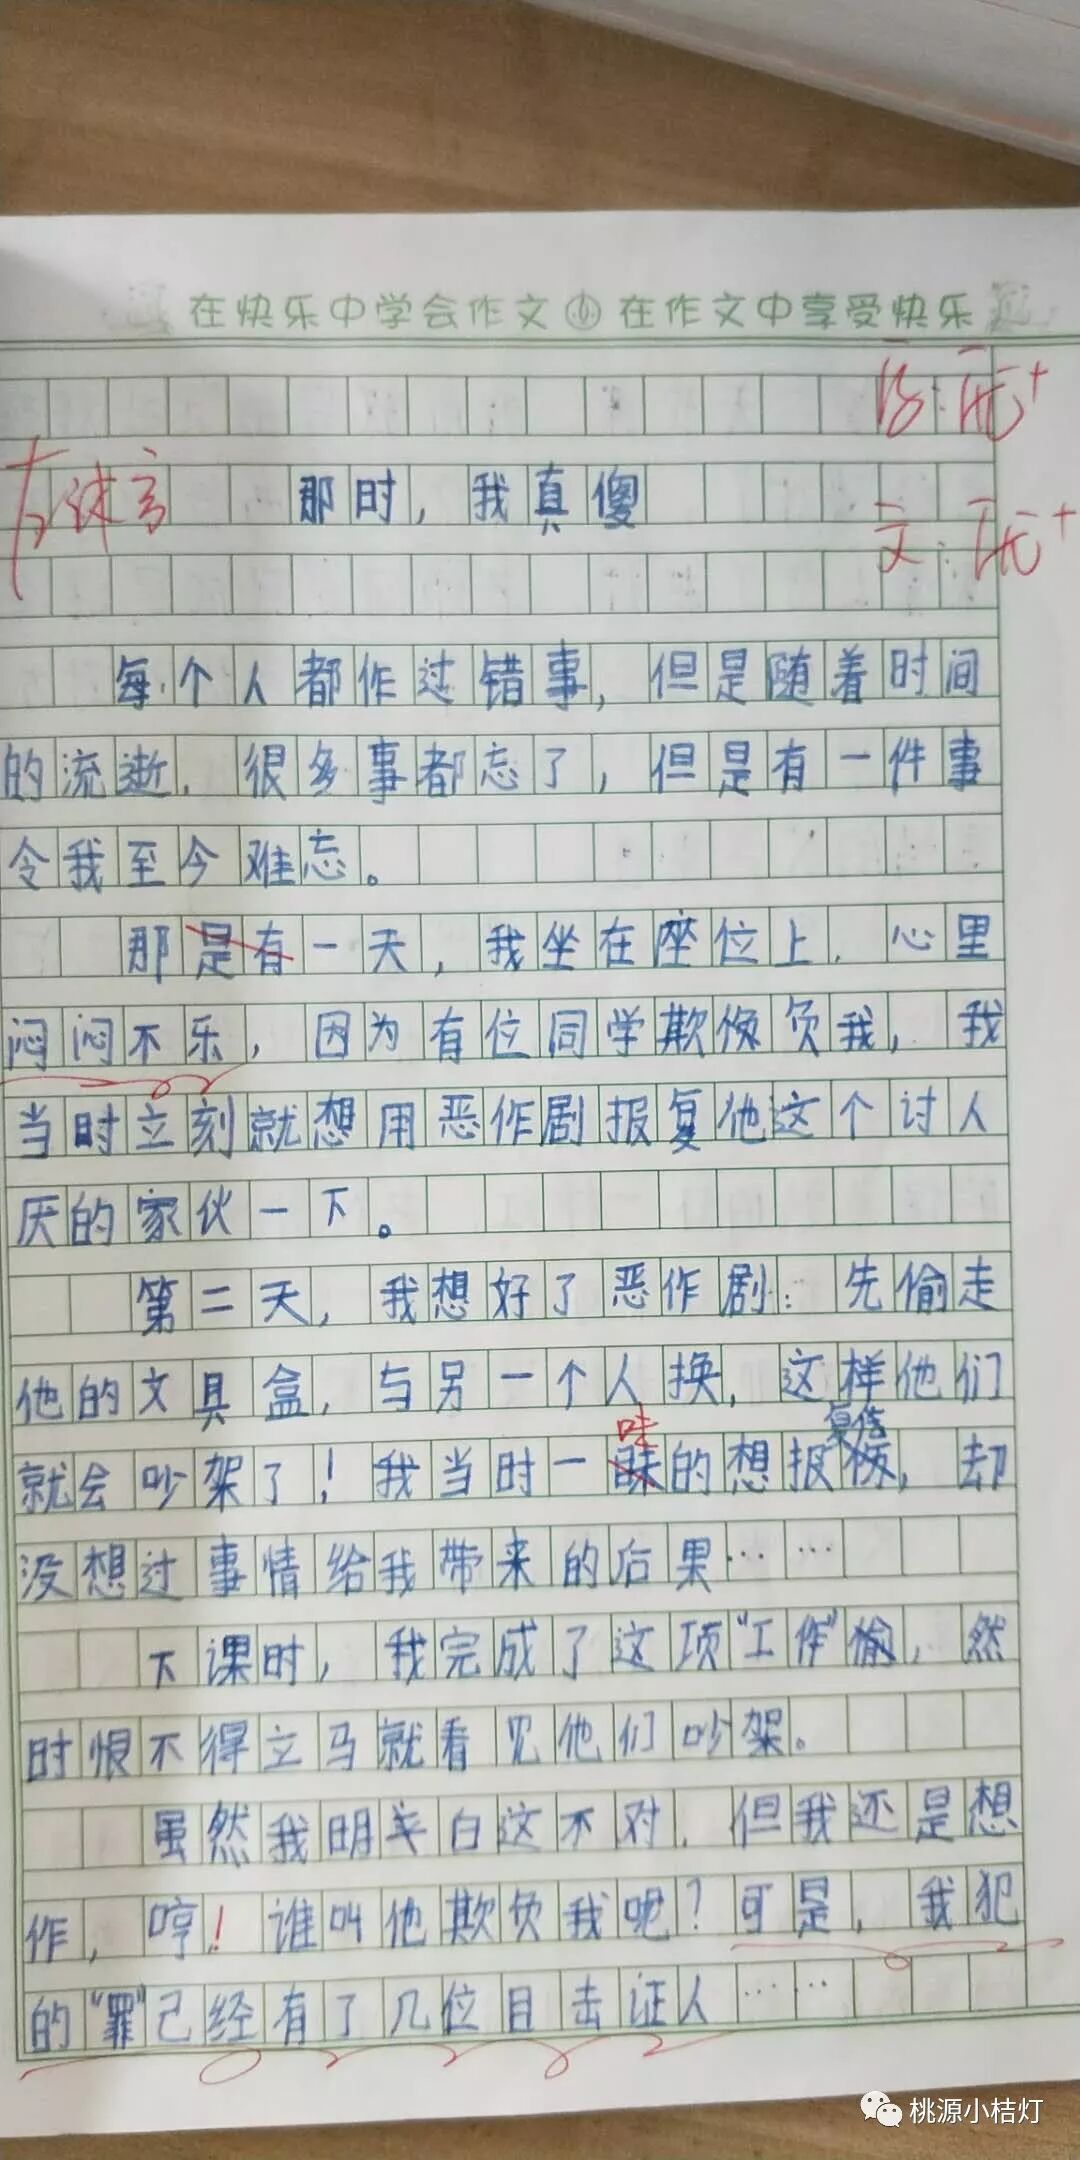 在快乐中学会作文 在作文中享受快乐
那时，我真傻
每个人都作过错事，但是随着时间
的流逝，很多事都忘了，但是有一件事
令我至今难忘。
那是有一天，我坐在座位上，心里
闷闷不乐，因为有位同学欺负我，我
当时立刻就想用恶作剧报复他这个讨人
厌的家伙一下。
第二天，我想好了恶作剧：先偷走
他的文具盒，与另一个人换，这样他们
味
就会吵架了！我当时一的想报复，却
没想过事情给我带来的后果……
下课时，我完成了这项“工作”偷，然
时恨不得立马就看见他们吵架。
虽然我明羊白这不对，但我还是想
作，哼！谁叫他欺负我呢？可是，我犯
的“罪”己经有了几位目击证人……
桃源小桔灯